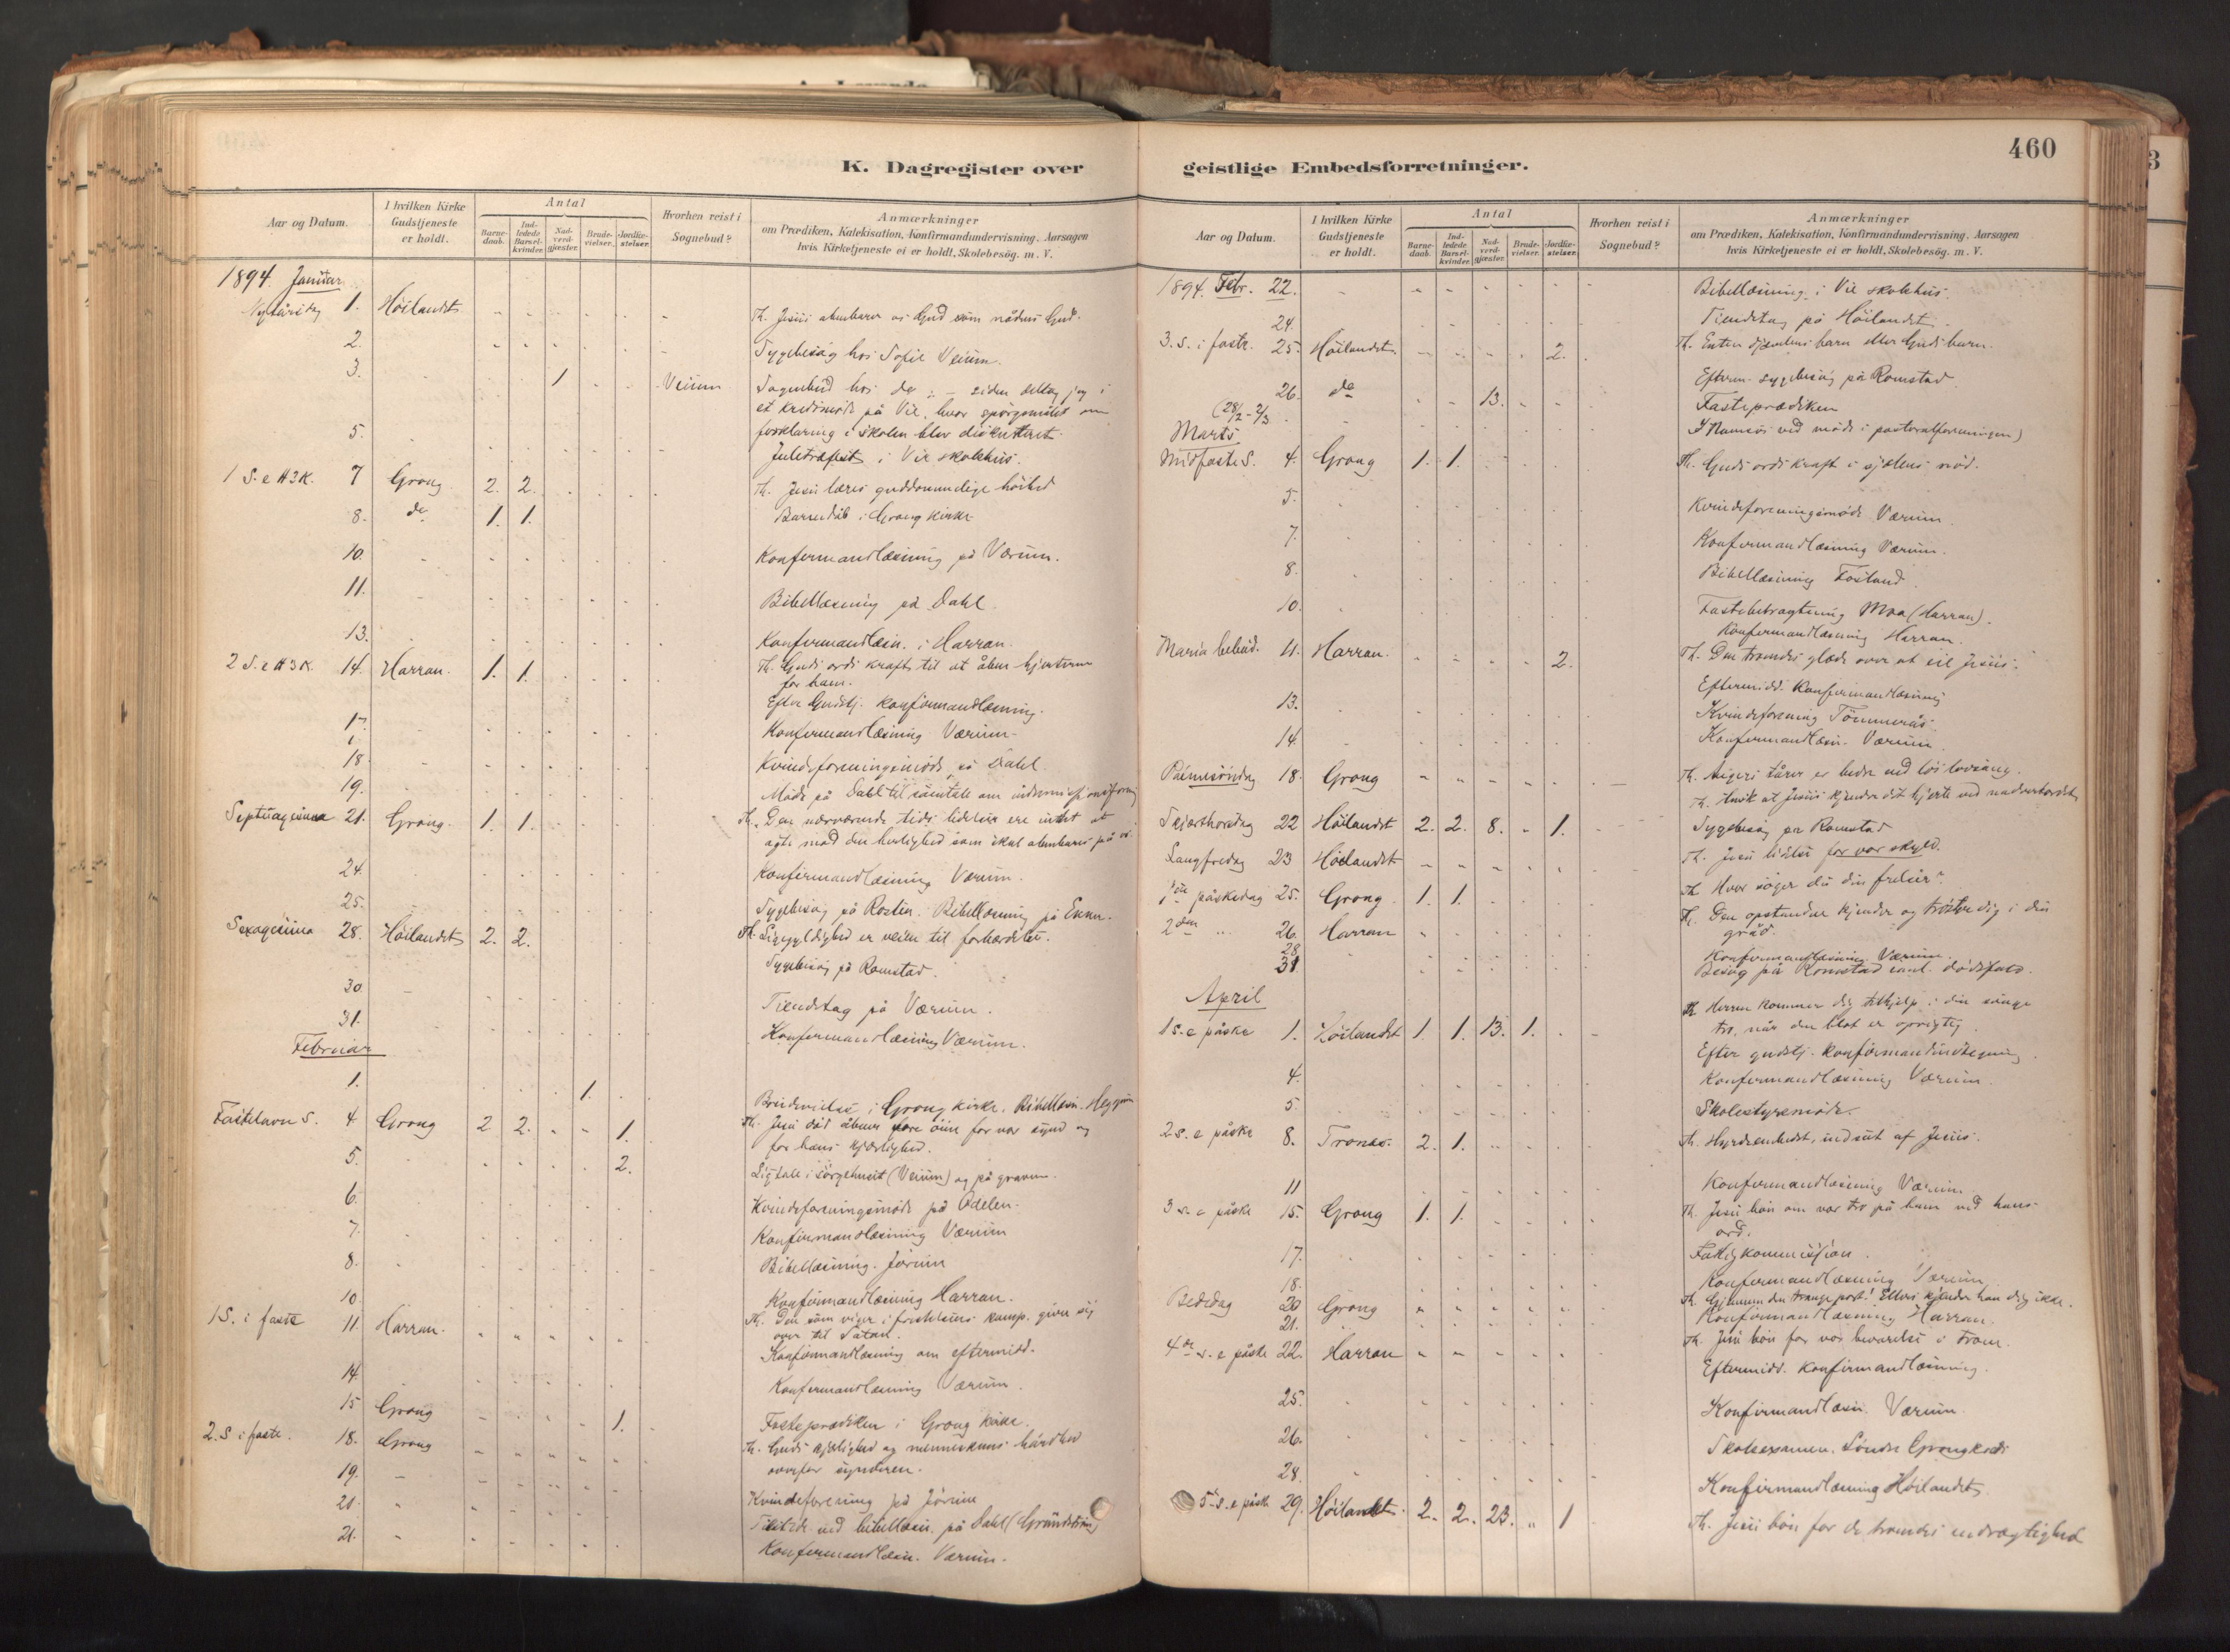 460
K. Dagregister over
geistlige Embedsforretninger.
Aar og Datum.
I hvilken Kirke Gudstjeneste er holdt.
Antal
Barnedaab.
Indledede Barselkvinder.
Nadverdgjæster.
Brudevielser.
Jordfæstelser.
Hvorhen reist i Sognebud?
Anmærkninger
om Prædiken, Katekisation, Konfirmandundervisning, Aarsagen
hvis Kirketjeneste ei er holdt, Skolebesög. m. V.
1894. Januar
Nytårsdag 1. Höilandet Th. Jesus åbenbarer os Gud som nådens Gud.
2. Sygebesög hos Sofie Veium.
3. 1 Veium Sognebud hos do; siden deltog jeg i
et kredsmöde på Vie, hvor spörgsmålet om
forklaring i skolen blev diskuteret.
5. Juletræfest i Vie skolehus.
1 S. e H3K. 7 Grong 2. 2. Th. Jesu læres guddommelige höihed
8. do 1. 1. Barnedåb i Grong kirke
10. Konfirmandlæsning på Værum.
11. Bibellæsning på Dahl.
13. Konfirmandlæsn. i Harran.
2 S. e H3K. 14. Harran. 1. 1. Th. Guds ords kraft til at åbne hjerterne
for ham.
Efter Gudstj. konfirmandlæsning.
17. Konfirmandlæsning Værum
18 Kvindeforeningsmöde på Dahl.
19. Möde på Dahl til samtale om indremissionsforening
Septuagesima 21. Grong. 1. 1. Th. Den nærværende tids lidelser ere intet at
agte mod den herlighed som skal åbenbares på os
24. Konfirmandlæsning Værum.
25. Sygebesög på Rosten. Bibellæsning på
Sexagesima 28. Höilandet 2. 2. Th. Ligegyldighed er veien til forhærdelse.
Sygebesög på Romstad.
30. Tiendetag på Værum.
31. Konfirmandlæsning Værum.
Februar
1. 1. Brudevielse i Grong kirke. Bibellæsn.
Fastelavns S. 4 Grong 2 2. 1. Th. Jesu död åbner vore öine for vor synd og
for hans kjærlighed.
5. 2. Ligtale i sörgehuset (Veium) og på graven.
6. Kvindeforeningsmöde på
7. Konfirmandlæsning Værum
8. Bibellæsning. Jörum
10. Konfirmandlæsning Harran.
1 S. i faste 11. Harran. Th. Den som viger i fristelsens kamp, giver sig
over til Satan.
Konfirmandlæsning om eftermidd.
14. Konfirmandlæsning Værum.
15 Grong 1. Fasteprædiken i Grong kirke.
2. S i faste. 18. Grong Th. Guds kjærlighed og menneskenes hårdhed
overfor synderen.
19. Kvindeforening på Jörum
20. bibellæsn. på Dahl
21. Konfirmandlæsn. Værum.
Aar og Datum.
I hvilken Kirke Gudstjeneste er holdt.
Antal
Barnedaab.
Indledede Barselkvinder.
Nadverdgjæster.
Brudevielser.
Jordfæstelser.
Hvorhen reist i Sognebud?
Anmærkninger
om Prædiken, Katekisation, Konfirmandundervisning, Aarsagen
hvis Kirketjeneste ei er holdt, Skolebesög. m. V.
1894. Febr. 22. Bibellæsning i Vie skolehus.
24. Tiendetag på Höilandet.
3. S. i faste. 25. Höilandet. 2. Th. Enten djævlens barn eller Guds barn.
Efterm. sygebesög på Romstad.
26. do 13. Fasteprædiken
(28/2 - 2/3 I Namsos ved möde i pastoralforeningen)
Marts
Midfaste S. 4. Grong 1. 1. Th. Guds ords kraft i sjælens nöd.
5. Kvindeforeningsmöde Værum.
7. Konfirmandlæsning Værum.
8. Bibellæsning Fosland.
10. Fastebetragtning Moa (Harran).
Konfirmandlæsning Harran.
Maria bebud. 11. Harran. 2. Th. Den troendes glæde over at eie Jesus.
Eftermidd. Konfirmandlæsning
13. Kvindeforening Tömmerås
14. Konfirmandlæsn. Værum.
Palmesöndag 18. Grong Th. Angers tårer er bedre end lös lovsang.
Th. Husk at Jesus kjender dit hjerte ved nadverbordet
Skjærthorsdag 22 Höilandet 2. 2. 8. 1. Sygebesög på Romstad
Langfredag 23 Höilandet Th. Jesu lidelse for vor skyld.
1ste påskedag 25. Grong. 1. 1. Th Hvor söger du din frelser?
2den " 26. Harran Th. Den opstandne kjender og tröster dig i din
gråd.
28. Konfirmandlæsning Værum
31 Besög på Romstad anl. dödsfald.
April
1 s. e påske 1. Höilandet 1. 1. 13. 1. Th. Herren kommer dig tilhjelp i din svage
tro, når den blot er oprigtig.
Efter gudstj. konfirmandindtegning.
4. Konfirmandlæsning Værum.
5. Skolestyremöde.
2 s. e påske 8. Trones. 2. 1. Th. Hyrdeembedet, indsat af Jesus.
11 Konfirmandlæsning Værum
3 s. e påske 15. Grong 1. 1. Th. Jesu bön om vor tro på ham ved hans
ord.
17. Fattigkommission.
18. Konfirmandlæsning Værum
Bededag 20 Grong Th. Gjennem den trange port! Ellers kjender han dig ikke.
21. Konfirmandlæsning Harran.
4de s. e påske 22. Harran Th. Jesu bön for vor bevarelse i troen.
Eftermidd. Konfirmandlæsning.
25. Konfirmandlæsn. Værum.
26. Skoleexamen. Söndre Grong kreds
28. Konfirmandlæsning Höilandet.
5. s. e påske 29. Höilandet. 2. 2. 23. " 1 Th. Jesu bön for de troendes endrægtighed